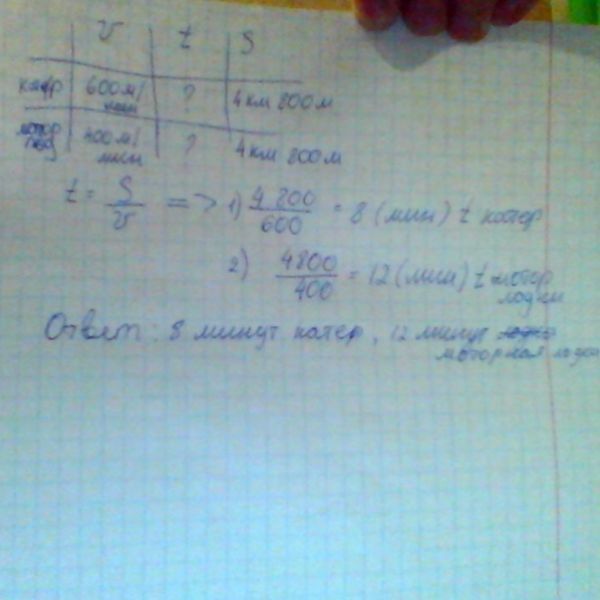 v t S
катер 600 м/мин ? 4 км 800 м
мотор лод 400 м/мин ? 4 км 800 м
t = S/v => 1) 4 800/600 = 8 (мин) t катер
2) 4800/400 = 12 (мин) t мотор
лодки
Ответ: 8 минут катер, 12 минут
моторная лодка